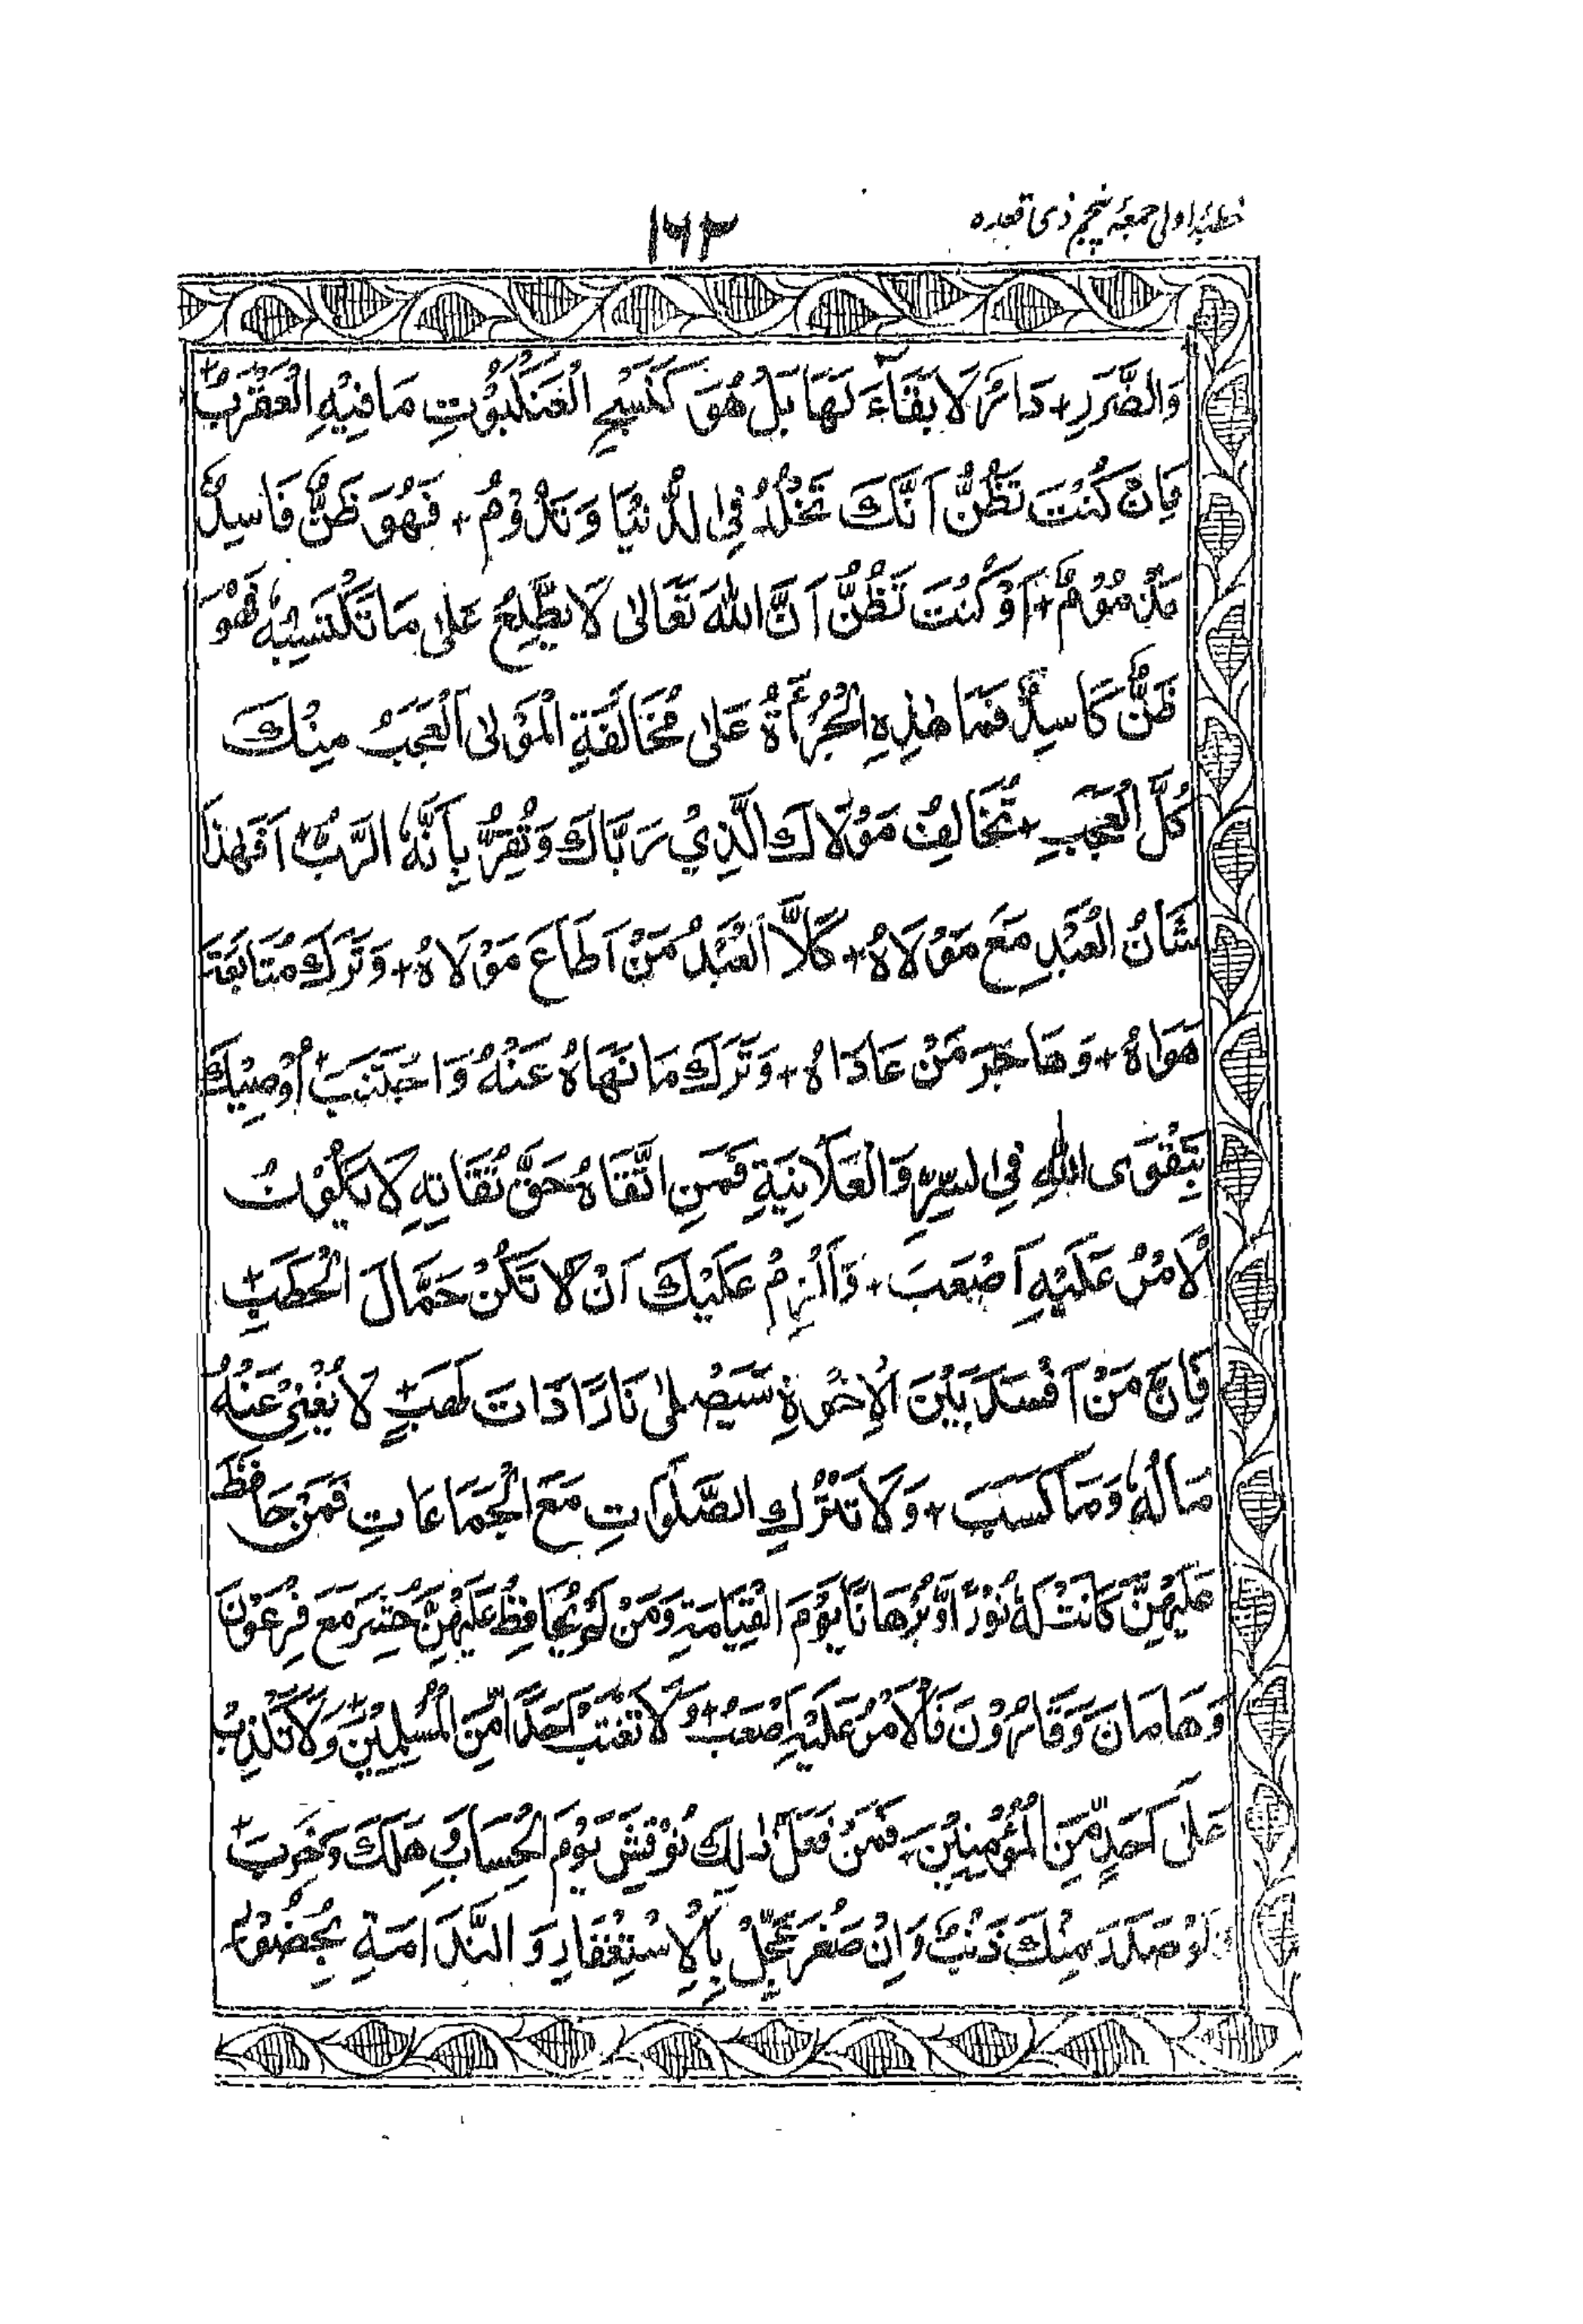 خطبۂ اولی جمعۂ پنجم ذی قعدہ
۱۶۳
وَالضَّرَرِ + دَارٌ لَا بَقَاۤءَ لَهَا بَلْ هُوَ كَنَسْجِ الْعَنْكَبُوْتِ مَا فِيْهِ الْعَقْرَبُ +
فَاِنْ كُنْتَ تَظُنُّ اَنَّكَ تَخْلُدُ فِي الدُّنْيَا وَتَدُوْمُ + فَهُوَ ظَنٌّ فَاسِدٌ
مَذْمُوْمٌ + اَوْ كُنْتَ تَظُنُّ اَنَّ اللّٰهَ تَعَالٰى لَا يَطَّلِعُ عَلٰى مَا تَكْتَسِبُهٗ فَهُوَ
ظَنٌّ كَاسِدٌ فَمَا هٰذِهِ الْجُرْأَةُ عَلٰى مُخَالَفَةِ الْمَوْلٰى اَلْعَجَبُ مِنْكَ
كُلَّ الْعَجَبِ + تُخَالِفُ مَوْلَاكَ الَّذِيْ رَبَّاكَ وَتُقِرُّ بِاَنَّهٗ الرَّبُّ + اَفَهٰذَا
شَانُ الْعَبْدِ مَعَ مَوْلَاهُ + كَلَّا اَلْعَبْدُ مَنْ اَطَاعَ مَوْلَاهُ + وَتَرَكَ مُتَابَعَةَ
هَوَاهُ + وَهَاجَرَ مَنْ عَادَاهُ + وَتَرَكَ مَا نَهَاهُ عَنْهُ وَاجْتَنَبَ + اُوْصِيْكَ
بِتَقْوَى اللّٰهِ فِي السِّرِّ وَالْعَلَانِيَةِ فَمَنِ اتَّقَاهُ حَقَّ تُقَاتِهٖ لَا يَكُوْنُ
الْاَمْرُ عَلَيْهِ اَصْعَبَ + وَاَلْزِمُ عَلَيْكَ اَنْ لَا تَكُنْ حَمَّالَ الْحَطَبِ +
فَاِنَّ مَنْ اَفْسَدَ بَيْنَ الْاِخْوَةِ سَيَصْلٰى نَارًا ذَاتَ لَهَبٍ + لَا يُغْنِيْ عَنْهُ
مَالُهٗ وَمَا كَسَبَ + وَلَا تَتْرُكِ الصَّلَوَاتِ مَعَ الْجَمَاعَاتِ فَمَنْ حَافَظَ
عَلَيْهِنَّ كَانَتْ لَهٗ نُوْرًا وَّبُرْهَانًا يَوْمَ الْقِيَامَةِ وَمَنْ لَمْ يُحَافِظْ عَلَيْهِنَّ حُشِرَ مَعَ فِرْعَوْنَ
وَهَامَانَ وَقَارُوْنَ فَالْاَمْرُ عَلَيْهِ اَصْعَبُ + وَلَا تَغْتَبْ اَحَدًا مِّنَ الْمُسْلِمِيْنَ + وَلَا تَكْذِبْ
عَلٰى اَحَدٍ مِّنَ الْمُؤْمِنِيْنَ + فَمَنْ فَعَلَ ذٰلِكَ نُوْقِشَ يَوْمَ الْحِسَابِ وَهَلَكَ وَخَرِبَ +
لَوْ صَدَرَ مِنْكَ ذَنْبٌ وَاِنْ صَغُرَ عَجِّلْ بِالْاِسْتِغْفَارِ وَالنَّدَامَةِ بِحُضُوْرِ